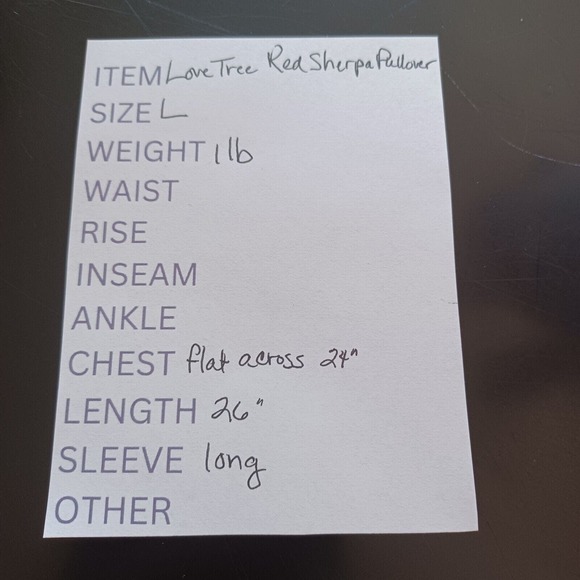 ITEM Love Tree Red Sherpa Pullover
SIZE L
WEIGHT 1 lb
WAIST
RISE
INSEAM
ANKLE
CHEST flat across 24"
LENGTH 26"
SLEEVE long
OTHER